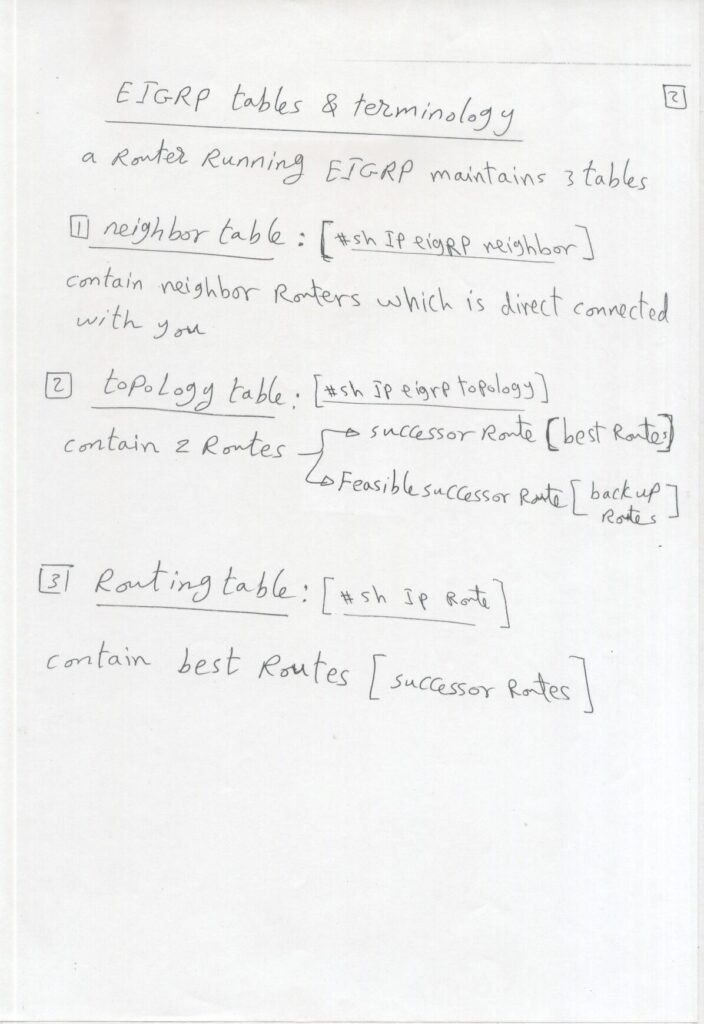 EIGRP tables & terminology
2
a Router Running EIGRP maintains 3 tables
1 neighbor table : [#sh Ip eigRP neighbor]
contain neighbor Routers which is direct connected
with you
2 topology table : [#sh Ip eigrp topology]
contain 2 Routes → successor Route [best Routes]
→ Feasible successor Route [back up
Routes]
3 Routing table : [#sh Ip Route]
contain best Routes [successor Routes]